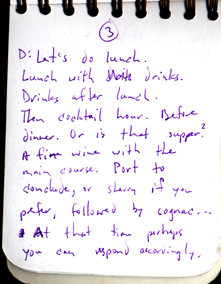 3
D: Let's do lunch.
Lunch with drinks.
Drinks after lunch.
Then cocktail hour. Before
dinner. Or is that supper?
A fine wine with the
main course. Port to
conclude, or sherry if you
prefer, followed by cognac...
At that time perhaps
you can respond accordingly.